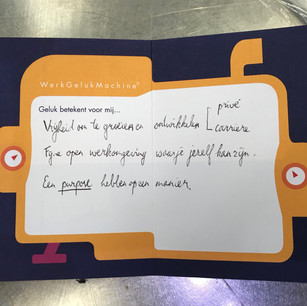 WerkGelukMachine
Geluk betekent voor mij...
Vrijheid om te groeien en ontwikkelen [ privé
carriere
Fijne open werkomgeving waar je jezelf kan zijn.
Een purpose hebben op een manier